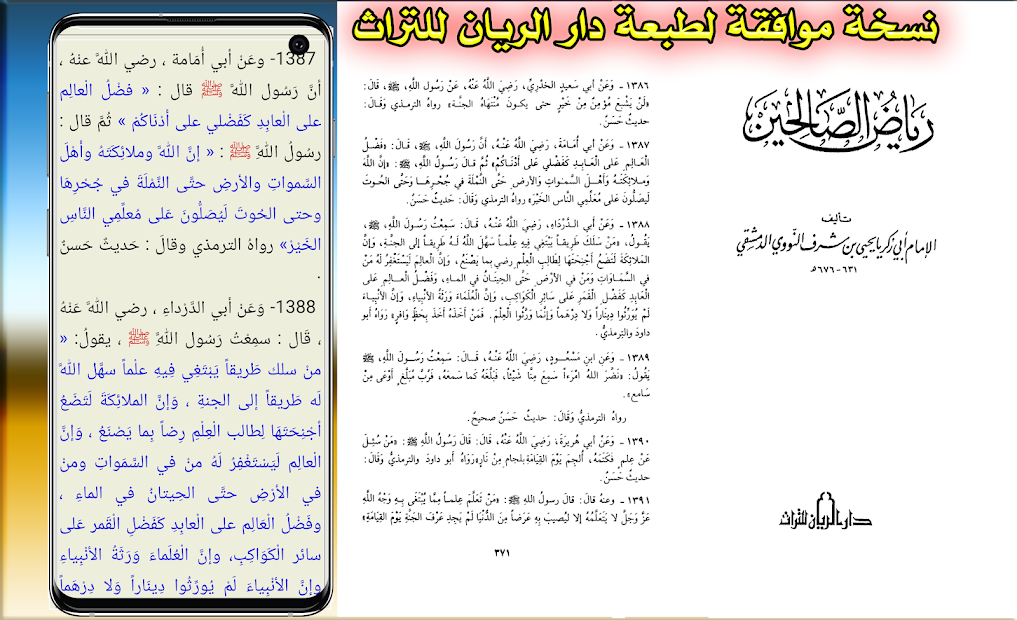 نسخة موافقة لطبعة دار الريان للتراث
1387- وعَنْ أبي أُمَامة ، رضي اللَّه عنْهُ ،
أنَّ رَسُول اللَّه ﷺ قال : « فضْلُ الْعالِم
على الْعابِدِ كَفَضْلي على أَدْنَاكُمْ » ثُمَّ قال :
رسُولُ اللَّهِ ﷺ : « إنَّ اللَّه وملائِكَتَهُ وأهْلَ
السَّمواتِ والأرضِ حتَّى النَّمْلَةَ في جُحْرِهَا
وحتى الحُوتَ لَيُصَلُّونَ عَلى مُعلِّمِي النَّاسِ
الخَيْرَ» رواهُ الترمذي وقالَ : حَديثٌ حَسنٌ
.
1388- وَعَنْ أبي الدَّرْداءِ ، رضي اللَّه عَنْهُ
، قَال : سمِعْتُ رَسُول اللَّهِ ﷺ ، يقولُ: «
منْ سلك طَريقاً يَبْتَغِي فِيهِ علْماً سهَّل اللَّه
لَه طَريقاً إلى الجنةِ ، وَإنَّ الملائِكَةَ لَتَضَعُ
أجْنِحَتَهَا لِطالب الْعِلْمِ رِضاً بِما يَصْنَعُ ، وَإنَّ
الْعالِم لَيَسْتَغْفِرُ لَهُ منْ في السَّمَواتِ ومنْ
في الأرْضِ حتَّى الحِيتانُ في الماءِ ،
وفَضْلُ الْعَالِم على الْعابِدِ كَفَضْلِ الْقَمر عَلى
سائر الْكَوَاكِبِ، وإنَّ الْعُلَماءَ وَرَثَةُ الأنْبِياءِ
وإنَّ الأنْبِياءَ لَمْ يُورِّثُوا دِينَاراً وَلا دِرْهَماً
١٣٨٦ ـ وَعَنْ أبي سَعيدٍ الخُدْرِيِّ، رَضِيَ اللَّهُ عَنْهُ، عَنْ رَسُولِ اللَّهِ، ﷺ، قَالَ:
«لَنْ يَشْبَعَ مُؤْمِنٌ مِنْ خَيْرٍ حتى يكونَ مُنْتَهَاهُ الجنَّةَ» رواهُ الترمذي وَقَالَ:
حديثٌ حَسَنٌ.
١٣٨٧ ـ وَعَنْ أبي أُمَامَةَ، رَضِيَ اللَّهُ عَنْهُ، أنَّ رَسُولَ اللَّهِ، ﷺ، قَالَ: «فَضْلُ
الْعَالِمِ عَلى الْعَابِدِ كَفَضْلي عَلى أَدْنَاكُمْ» ثُمَّ قَالَ رَسُولُ اللَّهِ، ﷺ: «إنَّ اللَّهَ
وَمَلائِكَتَهُ وَأَهْلَ السَّمَواتِ وَالأرْضِ حَتَّى النَّمْلَةَ في جُحْرِهَا وَحَتَّى الحُوتَ
لَيُصَلُّونَ عَلى مُعَلِّمِي النَّاسِ الخَيْرَ» رواهُ الترمذي وَقَالَ: حَدِيثٌ حَسَنٌ.
١٣٨٨ ـ وَعَنْ أبي الدَّرْدَاءِ، رَضِيَ اللَّهُ عَنْهُ، قَالَ: سَمِعْتُ رَسُولَ اللَّهِ، ﷺ،
يَقُولُ: «مَنْ سَلَكَ طَرِيقاً يَبْتَغِي فِيهِ عِلْماً سَهَّلَ اللَّهُ لَهُ طَرِيقاً إلى الجنةِ، وَإنَّ
المَلائِكَةَ لَتَضَعُ أَجْنِحَتَهَا لِطَالِبِ الْعِلْمِ رضىً بِما يَصْنَعُ، وَإنَّ الْعَالِمَ لَيَسْتَغْفِرُ لَهُ مَنْ
في السَّمَاوَاتِ وَمَنْ في الأرْضِ حَتَّى الحِيتَانُ في الماءِ، وَفَضْلُ الْعَالِمِ عَلى
الْعَابِدِ كَفَضْلِ الْقَمَرِ عَلى سَائِرِ الْكَوَاكِبِ، وَإنَّ الْعُلَمَاءَ وَرَثَةُ الأنْبِيَاءِ، وَإنَّ الأنْبِيَاءَ
لَمْ يُوَرِّثُوا دِينَاراً وَلا دِرْهَماً وَإنَّما وَرَّثُوا الْعِلْمَ. فَمَنْ أَخَذَهُ أَخَذَ بِحَظٍّ وَافِرٍ» رَوَاهُ أبو
داودَ وَالترمِذيُّ.
١٣٨٩ ـ وَعَنِ ابنِ مَسْعُودٍ، رَضِيَ اللَّهُ عَنْهُ، قَالَ: سَمِعْتُ رَسُولَ اللَّهِ، ﷺ
يَقُولُ: «نَضَّرَ اللهُ امْرَءاً سَمِعَ مِنَّا شَيْئاً، فَبَلَّغَهُ كما سَمِعَهُ، فَرُبَّ مُبَلَّغٍ أَوْعَى مِنْ
سَامعٍ».
رواهُ الترمذيُّ وَقَالَ: حديثٌ حَسَنٌ صحيحٌ.
١٣٩٠ ـ وَعَنْ أبي هُرَيرَةَ، رَضِيَ اللَّهُ عَنْهُ، قَالَ: قَالَ رَسُولُ اللَّهِ ﷺ: «مَنْ سُئِلَ
عَنْ عِلمٍ فَكَتَمَهُ، أُلجِمَ يَوْمَ القِيَامَةِ بِلجامٍ مِنْ نَارٍ» رَوَاهُ أبو داودَ والترمذيُّ وَقَالَ:
حديثٌ حَسَنٌ.
١٣٩١ ـ وعنهُ قالَ: قالَ رسولُ اللهِ ﷺ: «مَنْ تَعَلَّمَ عِلماً مِمَّا يُبْتَغَى بِهِ وَجْهُ اللَّهِ
عَزَّ وَجَلَّ لا يَتَعَلَّمُهُ إلا لِيُصِيبَ بِهِ عَرَضاً مِنَ الدُّنْيَا لَمْ يَجِدْ عَرْفَ الجَنَّةِ يَوْمَ القِيَامَةِ»
٣٧١
رياض الصالحين
تأليف
الإمام أبي زكريا يحيى بن شرف النووي الدمشقي
٦٣١ - ٦٧٦ هـ
دار الريان للتراث